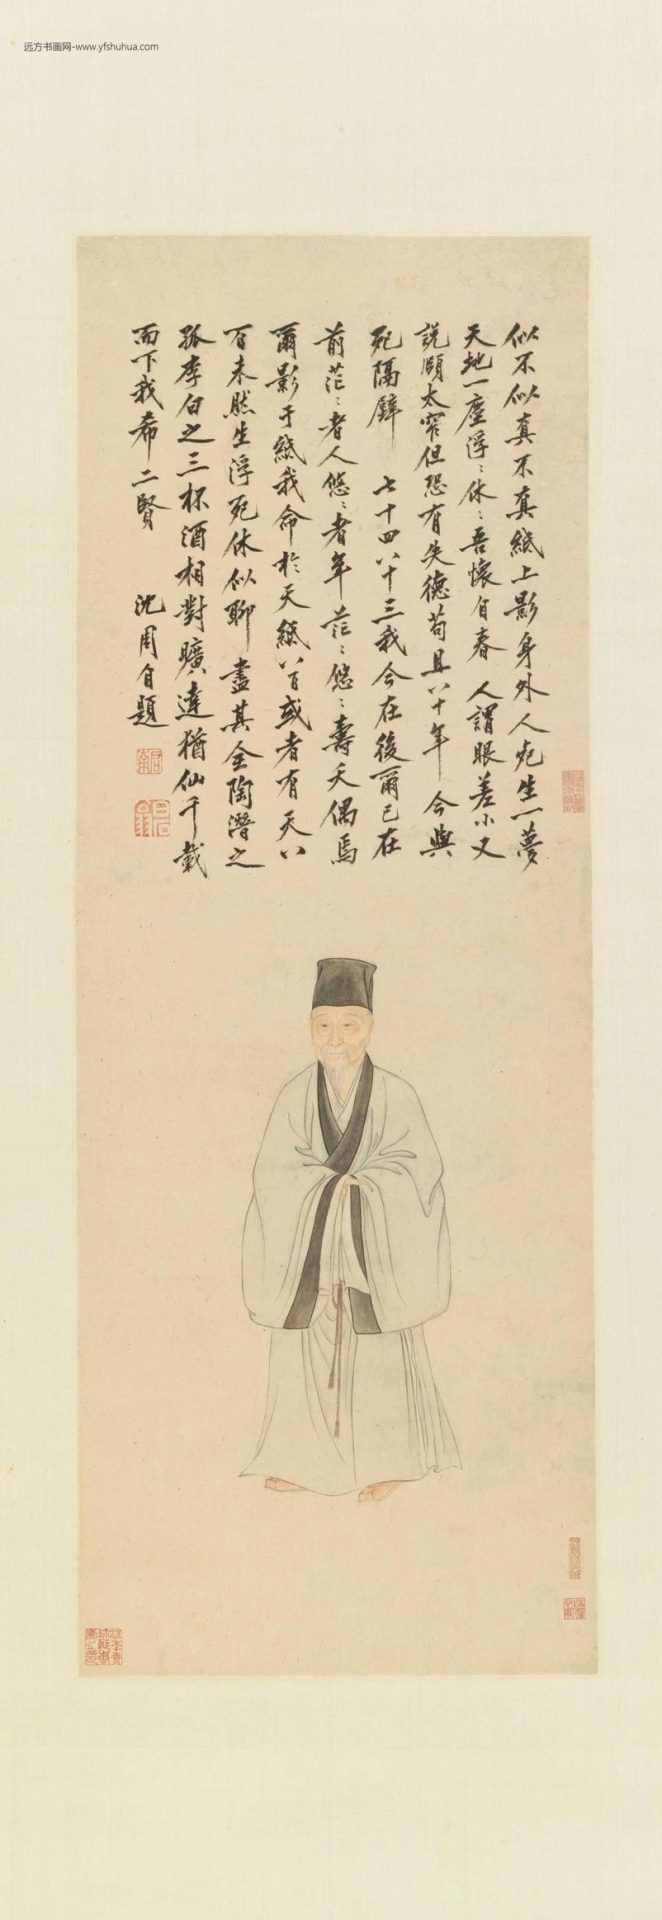 远方书画网-www.yfshuhua.com
似不似真不真紙上影身外人死生一夢
天地一塵浮〻休〻吾懷自春　人謂眼差小又
說頤太窄但恐有失德苟且八十年　今與
死隔壁　七十四八十三我今在後爾已在
前茫〻者人悠〻者年茫〻悠〻壽夭偶焉
爾影于紙我命於天紙八百或者有天八
百未然生浮死休似聊盡其全陶潛之
孤李白之三杯酒相對曠達猶仙千載
而下我希二賢　沈周自題
啟南
石田